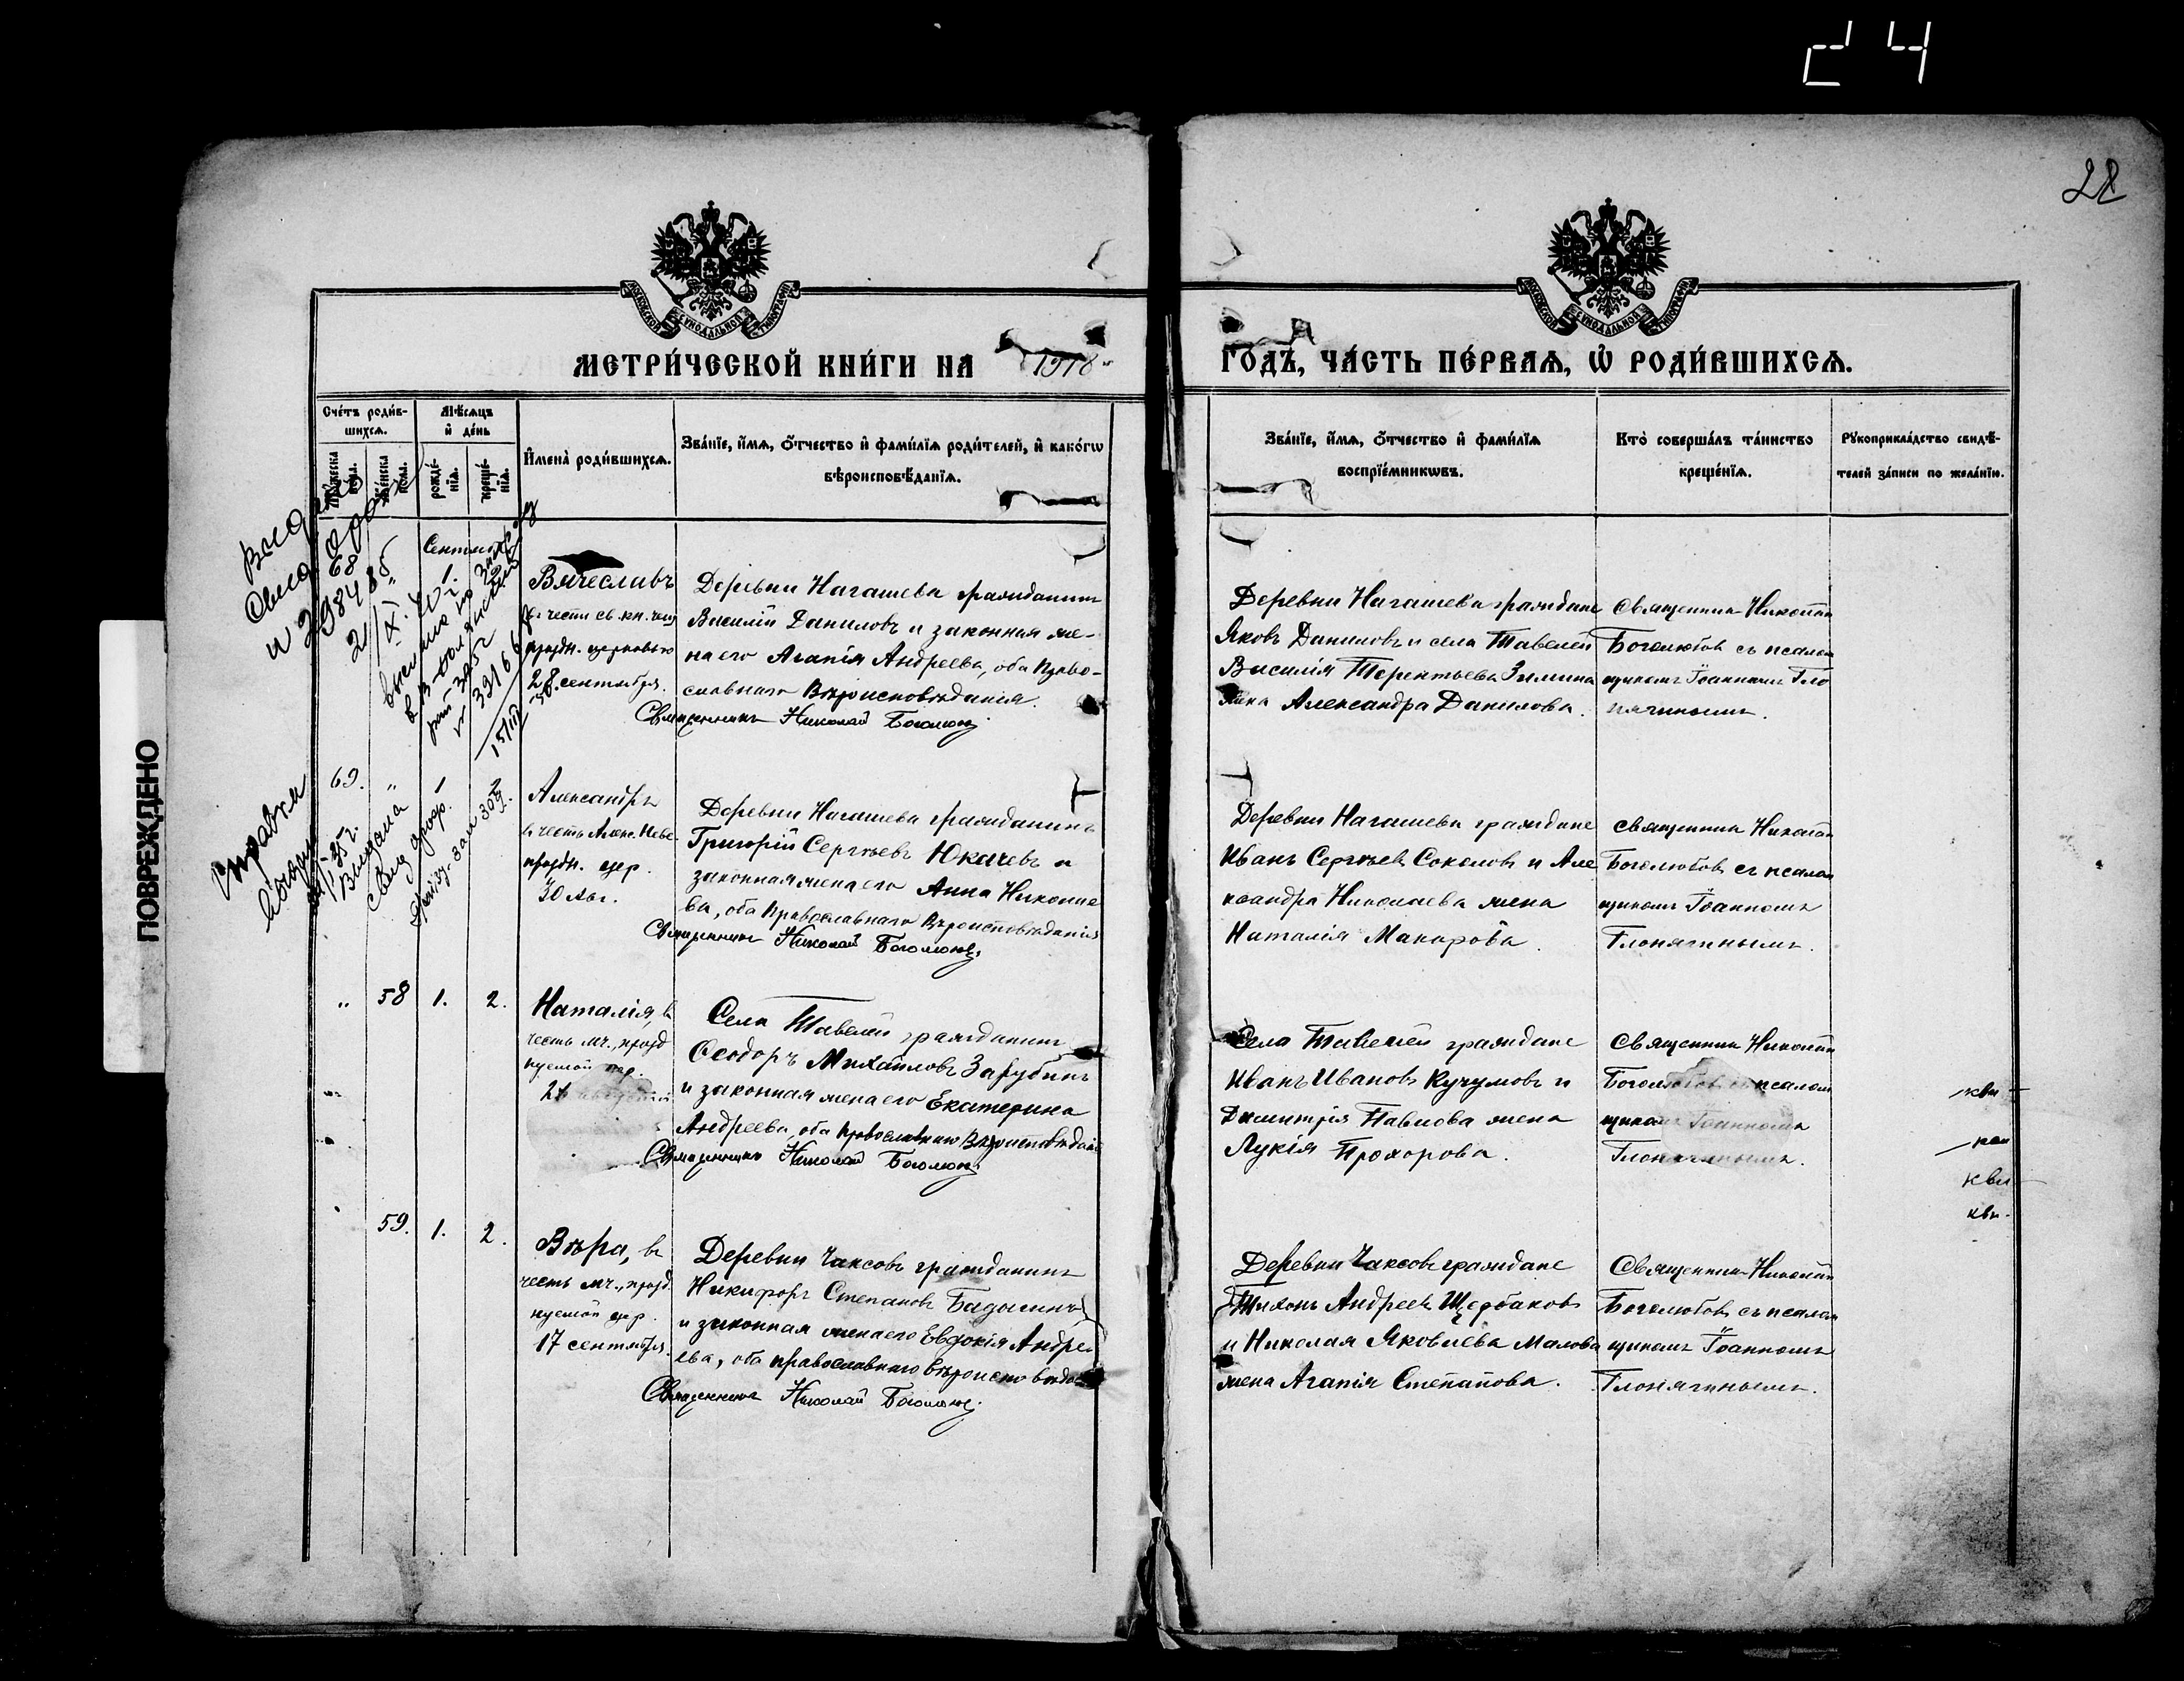 24
28
ПОВРЕЖДЕНО
МОСКОВСКОЙ СѴНОДАЛЬНОЙ ТИПОГРАФІИ
МОСКОВСКОЙ СѴНОДАЛЬНОЙ ТИПОГРАФІИ
МЕТРИ́ЧЕСКОЙ КНИ́ГИ НА 1918 ГОДЪ, ЧА́СТЬ ПЕ́РВАѦ, Ѡ҆ РОДИ́ВШИХСѦ.
Сче́тъ роди́в-
шихсѧ.
Мѣ́сѧцъ
и҆ де́нь
Мꙋ́жеска
пола.
Же́нска
пола.
рожде́-
нїѧ.
креще́-
нїѧ.
И҆мена̀ роди́вшихсѧ.
Зва́нїе, и҆́мѧ, ѻ҆́тчество и҆ фами́лїѧ роди́телей, и҆ како́гѡ
вѣроисповѣ́данїѧ.
Зва́нїе, и҆́мѧ, ѻ҆́тчество и҆ фами́лїѧ
воспрїе́мникѡвъ.
Кто̀ соверша́лъ та́инство
креще́нїѧ.
Рꙋкоприкла́дство свидѣ́-
телей за́писи по жела́нїю.
68 " 1.
Вячеславъ
въ честь св. кн. чеш
праздн. церковью
28 сентября.
Деревни Нагашева гражданинъ
Василій Даниловъ и законная же-
на его Агапія Андреева, оба Право-
славнаго Вѣроисповѣданія.
Священникъ Николай Боголюбовъ
Деревни Нагашева граждане
Яковъ Даниловъ и села Тавелей
Василія Терентьева Зимина
жена Александра Данилова.
Священникъ Николай
Боголюбовъ съ псалом
щикомъ Іоанномъ Гло
нягинымъ.
69. " 1
Александръ
въ честь Алекс. Невс
праздн. цер.
30 Авг.
Деревни Нагашева гражданинъ
Григорій Сергѣевъ Юкачевъ и
законная жена его Анна Николае
ва, оба Православнаго Вѣроисповѣданія
Священникъ Николай Боголюбовъ
Деревни Нагашева граждане
Иванъ Сергѣевъ Соколовъ и Але
ксандра Николаева жена
Наталія Макарова.
Священникъ Николай
Боголюбовъ съ псалом
щикомъ Іоанномъ
Глонягинымъ.
" 58 1. 2.
Наталія, въ
честь мч., празд
нуемой цер.
Села Тавелей гражданинъ
Ѳеодоръ Михайловъ Зарубинъ
и законная жена его Екатерина
Андреева, оба Православнаго Вѣроисповѣданія
Священникъ Николай Боголюбовъ
Села Тавелей граждане
Иванъ Ивановъ Кучумовъ и
Димитрія Павлова жена
Лукія Прохорова.
Священникъ Николай
Боголюбовъ съ псалом
щикомъ Іоанномъ
Глонягинымъ.
59. 1. 2.
Вѣра, въ
честь мч., празд
нуемой цер.
17 сентября.
Деревни Чаксовъ гражданинъ
Никифоръ Степановъ Бадагинъ
и законная жена его Евдокія Андре
ева, оба православнаго вѣроисповѣда
Священникъ Николай Боголюбовъ
Деревни Чаксовъ граждане
Тихонъ Андреевъ Щербаковъ
и Николая Яковлева Малова
жена Агапія Степанова.
Священникъ Николай
Боголюбовъ съ псалом
щикомъ Іоанномъ
Глонягинымъ.